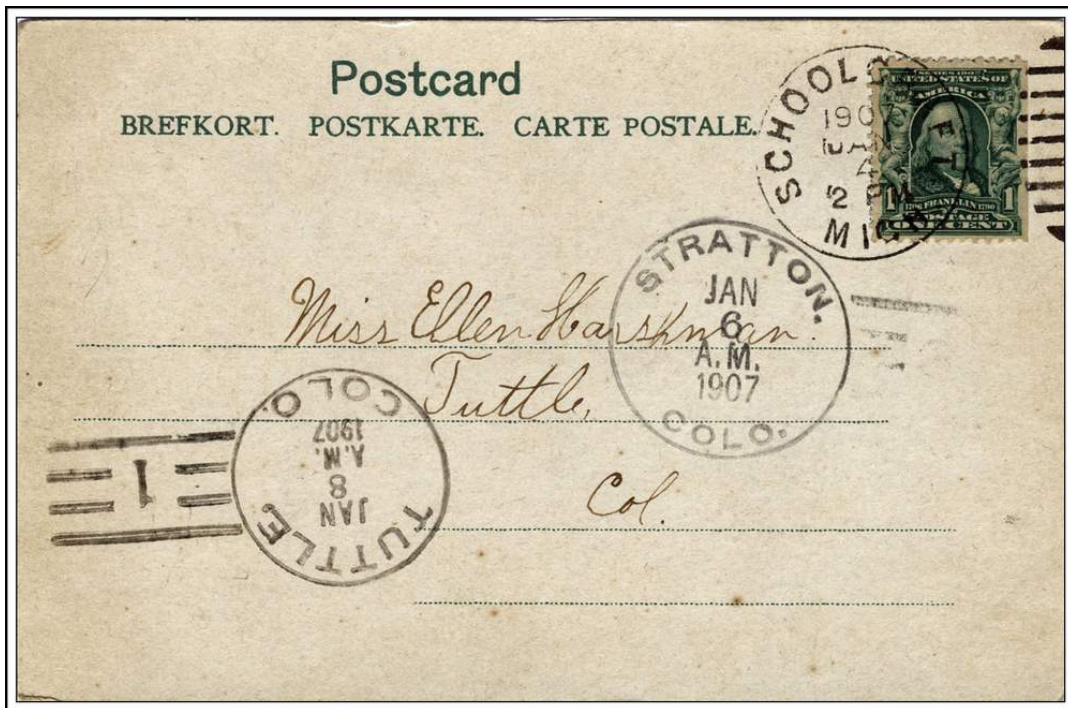 Postcard
BREFKORT. POSTKARTE. CARTE POSTALE.
SCHOOLC FT
1907
JAN
4
2 PM
MICH
UNITED STATES OF
AMERICA
1 1
1706 FRANKLIN 1790
POSTAGE
ONE CENT
STRATTON.
JAN
6
A.M.
1907
COLO.
Miss Ellen Harshman.
Tuttle,
Col.
TUTTLE
JAN
8
A.M.
1907
COLO.
1